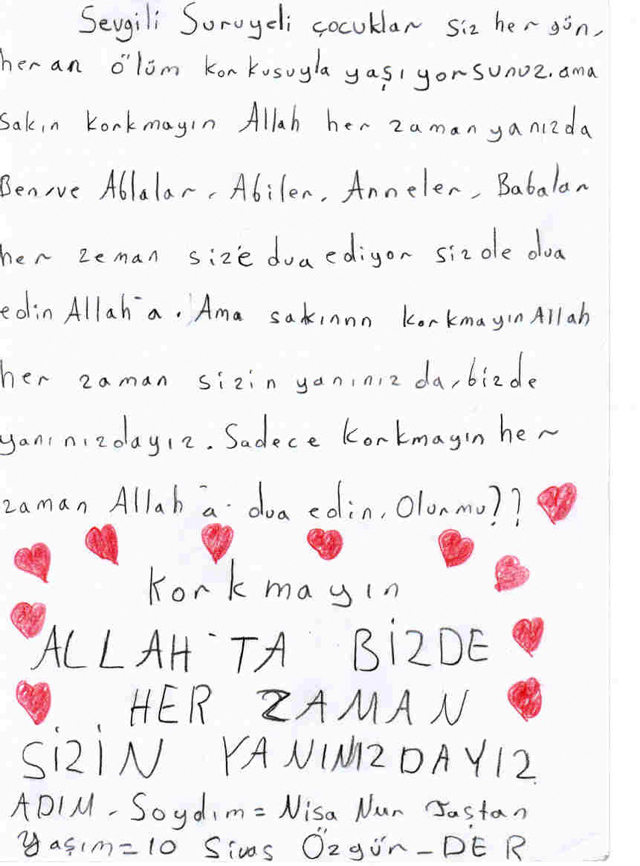 Sevgili Suruyeli çocuklar siz her gün,
her an ölüm korkusuyla yaşıyorsunuz. ama
sakın korkmayın Allah her zaman yanızda
Ben, ve Ablalar, Abiler, Anneler, Babalar
her zeman size dua ediyor siz de dua
edin Allah'a. Ama sakınnn korkmayın Allah
her zaman sizin yanınız da, bizde
yanınızdayız. Sadece korkmayın her
zaman Allah'a dua edin. Olurmu??
Korkmayın
ALLAH'TA BİZDE
HER ZAMAN
SİZİN YANINIZDAYIZ
ADIM - Soydım = Nisa Nur Taştan
Yaşım = 10 Sivas Özgür - DER